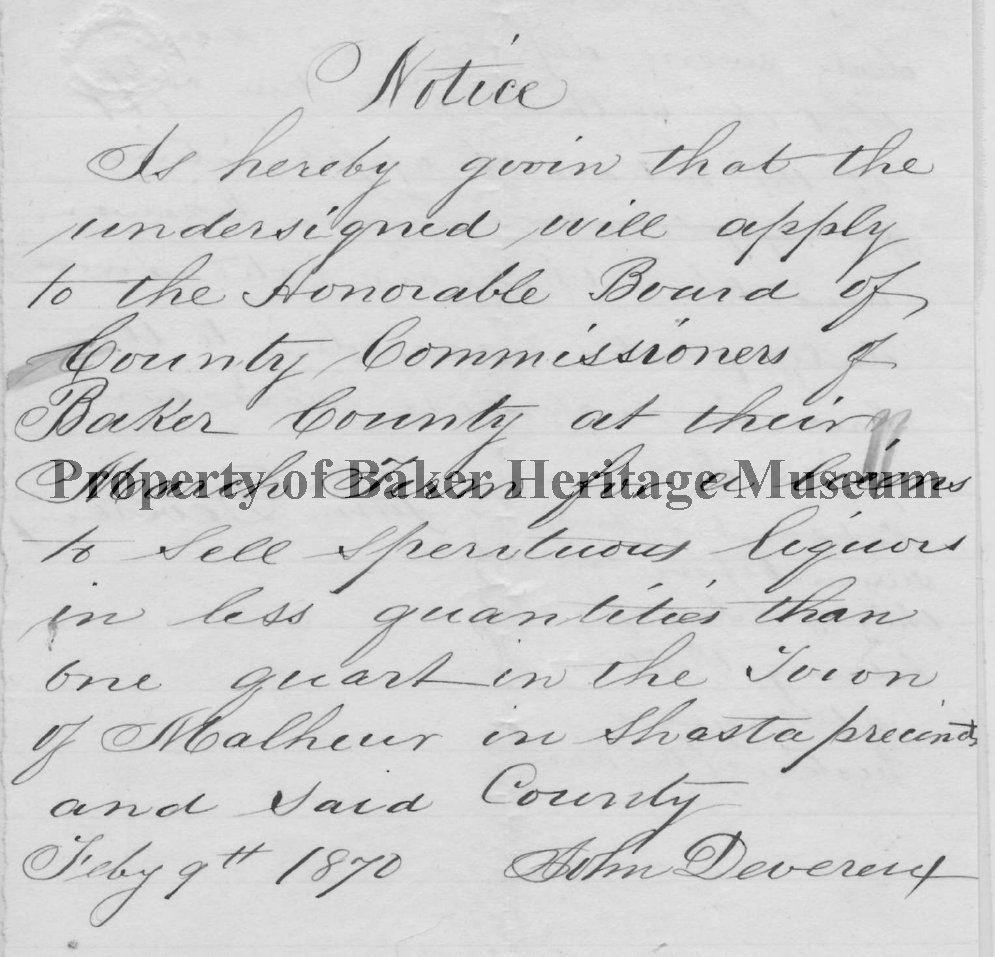 Notice
Is hereby givin that the
undersigned will apply
to the Honorable Board of
County Commissioners of
Baker County at their
March Term for a
Property of Baker Heritage Museum
to sell sperituous liquors
in less quantities than
one quart in the Town
of Malheur in Shasta precinct
and said County
Feby 9th 1870 John Devereux